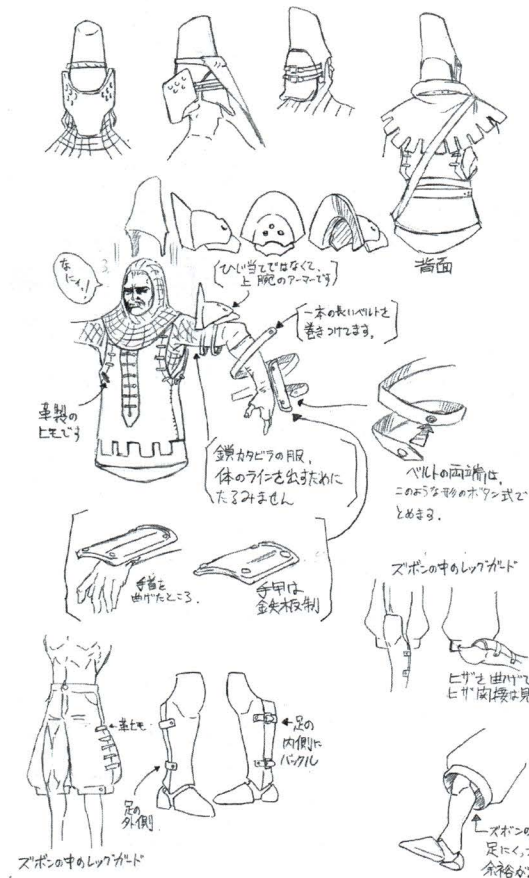 背面
なにィ!
(ひじ当てではなくて、
上腕のアーマーです)
一本の長いベルトを
巻きつけてます。
革製の
ヒモです
鎖カタビラの服、
体のラインを出すために
たるみません
ベルトの両端は、
このような形のボタン式で
とめます。
手首を
曲げたところ.
手甲は
鉄板制
ズボンの中のレッグガード
ヒザを曲げて
ヒザ関接は見
革ヒモ
足の
外側
足の
内側に
バックル
ズボンの
足にくっ
余裕が
ズボンの中のレッグガード